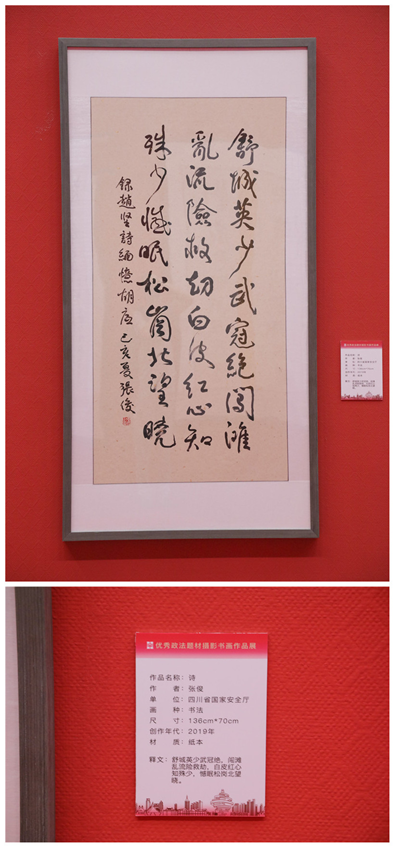 舒城英少武冠绝闯滩
亂流險救劫白皮红心知
殊少憾眠松崗北望曉
録趙堅詩緬懷胡底己亥夏張俊
优秀政法题材摄影书画作品展
作品名称：诗
作 者：张俊
单 位：四川省国家安全厅
画 种：书法
尺 寸：136cm*70cm
创作年代：2019年
材 质：纸本
释文：舒城英少武冠绝，闯滩
乱流险救劫，白皮红心
知殊少，憾眠松岗北望
晓。